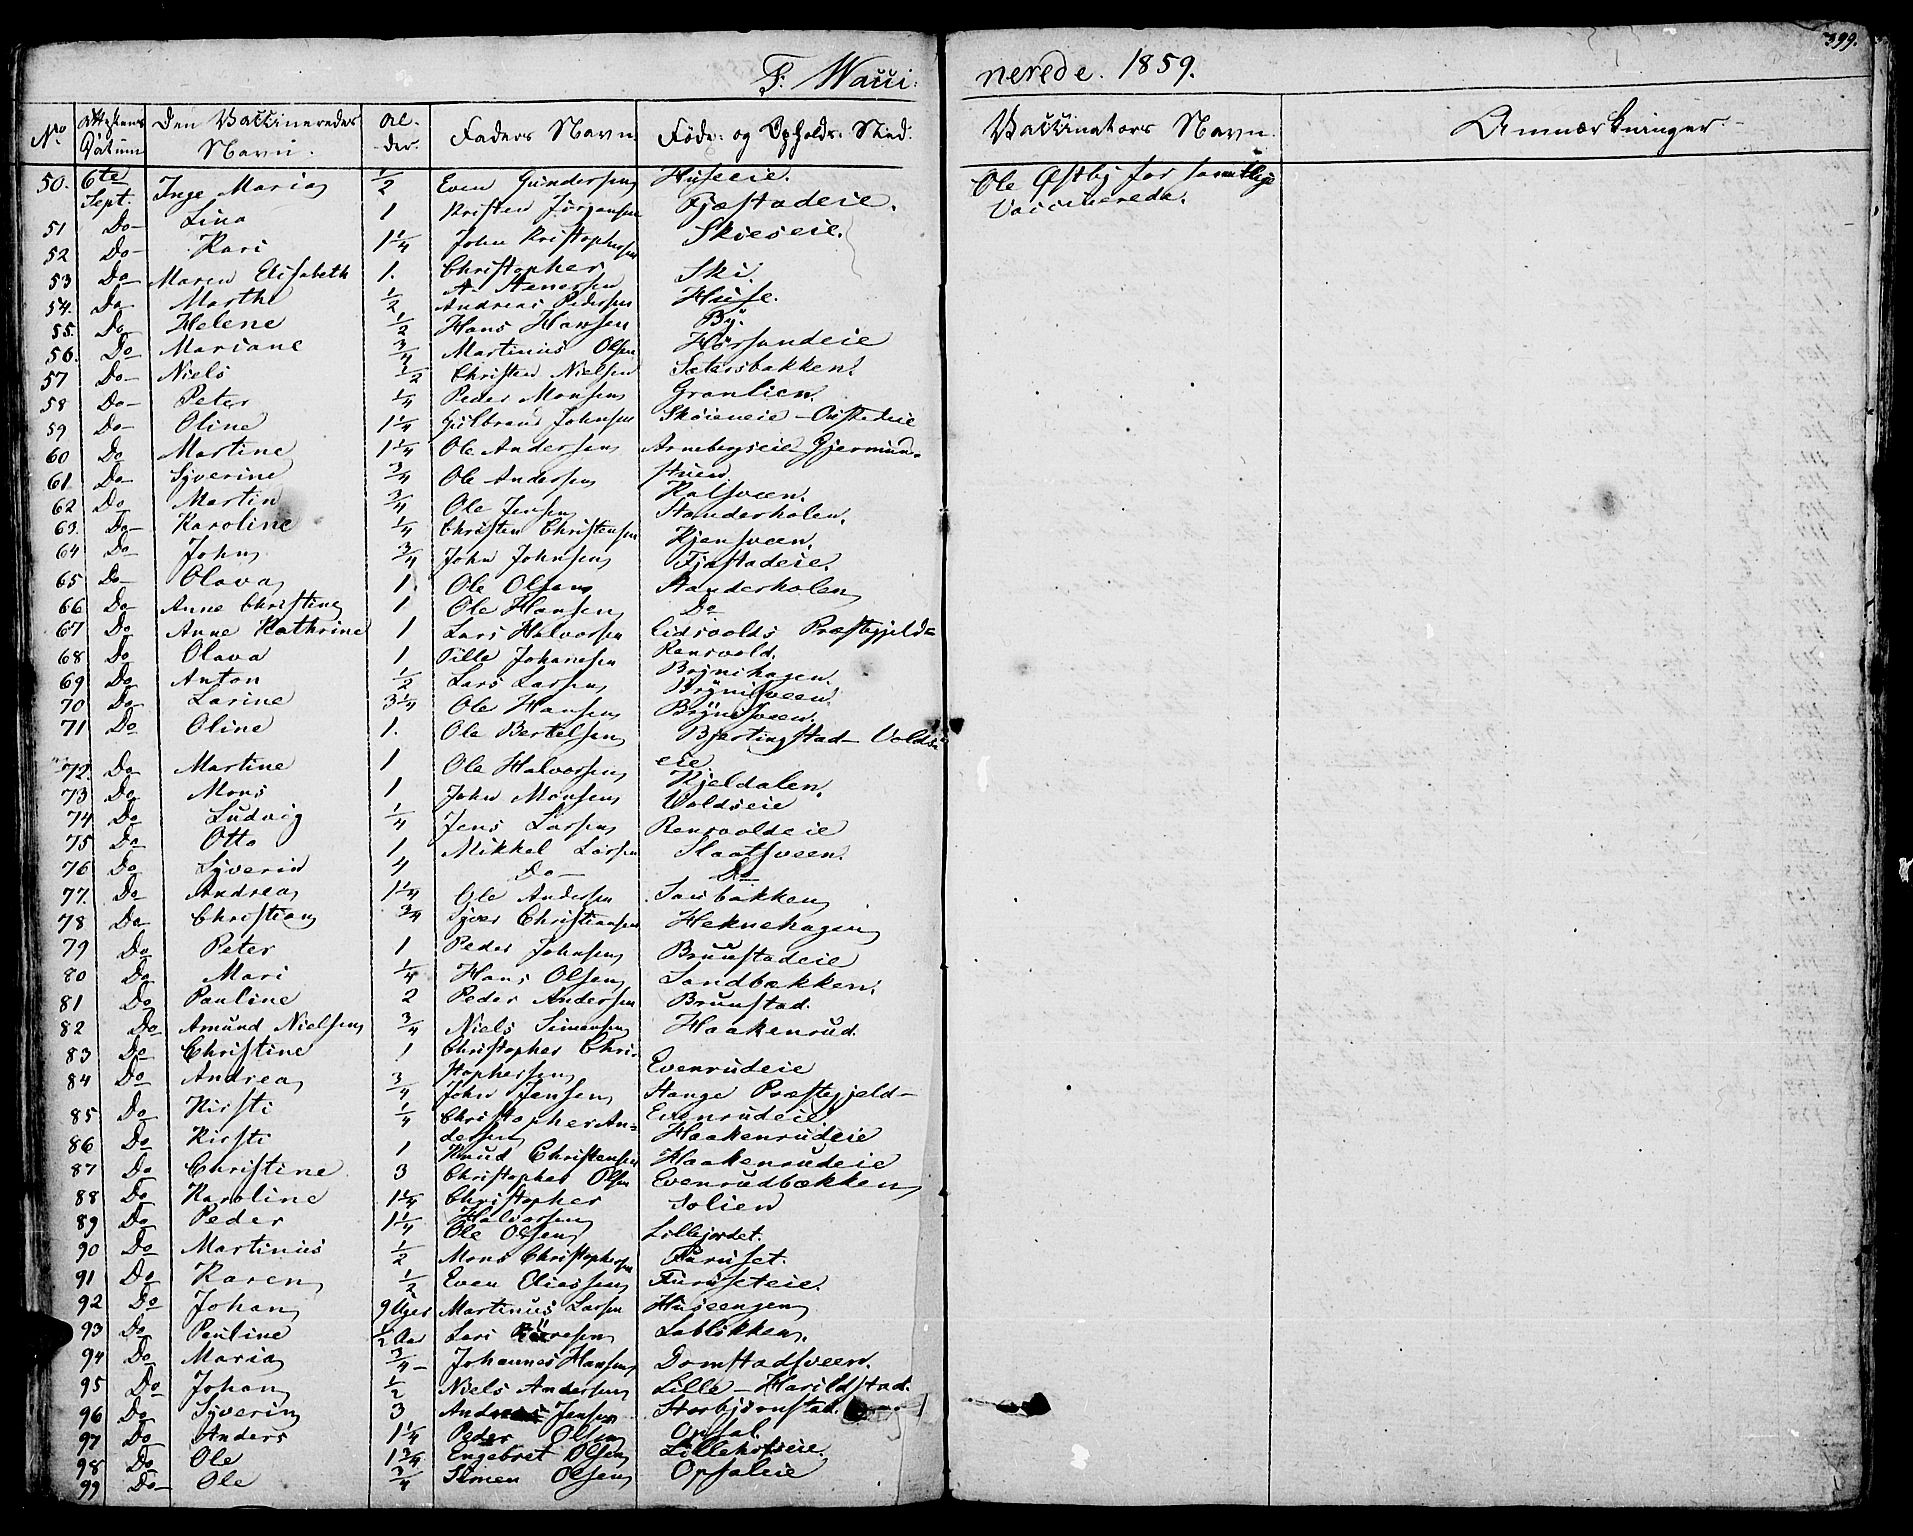 399.
F. Wacci- nerede. 1859.
No. | Attestens Datum | Den Vaccineredes Navn. | Al- der. | Faders Navn. | Føde- og Opholds-Sted. | Vaccinators Navn. | Anmærkninger.
50. 6te Sept. Inge Maria 1/2 Even Gundersen Huseie. Ole Østby for samtlige Vaccinerede.
51 Do Lina 1 Kristen Jørgensen Fjæstadeie.
52 Do Kari 1 1/4 John Kristophersen Skieseie.
53 Do Maren Elisabeth 1. Christopher A. Stenersen Ski.
54. Do Marthe 1/2 Andreas Pedersen Huse.
55. Do Helene 1/2 Hans Hansen By.
56. Do Mariane 3/4 Martinus Olsen Horsundeie
57 Do Niels 3/2 Christen Nielsen Sætersbakken.
58 Do Peter 1/4 Peder Monsen Granlien.
59 Do Oline 1 1/4 Gulbrand Johnsen Skøieneie
60 Do Martine 1 1/4 Ole Andersen Arnebergseie Gjermund-
61 Do Syverine 3/4 Ole Andersen stuen.
62 Do Martin 3/4 Ole Jensen Kalsveen.
63. Do Karoline 1/4 Christen Christensen Standerholen.
64 Do John 3/4 John Johnsen Kjensveen. Fjæstadeie.
65 Do Olava 1. Ole Olsen Standerholen
66 Do Anne Christine 1 Ole Hansen Do
67 Do Anne Kathrine 1 Lars Halvorsen Eidsvolds Præstegjeld-
68 Do Olava 1 Pille Johannesen Rensvold.
69 Do Anton 1/2 Lars Larsen Brynihagen.
70 Do Larine 3 1/4 Ole Hansen Brynisveen.
71 Do Oline 1. Ole Bertelsen Brynisveen. Bjertingstad- Volds-
72. Do Martine 1 Ole Halvorsen eie
73 Do Mons 1 John Monsen Kjeldalen.
74 Do Ludvig 1/4 Jens Larsen Voldseie
75 Do Otto 1 Mikkel Larsen Rensvoldeie Slaatsveen.
76 Do Syverin 4 Do Do
77. Do Andrea 1 1/4 Ole Andersen Sandbakken
78 Do Christian 3/4 Syver Christiansen Heknehagen
79 Do Peter 1 Peder Johnsen Bruustadeie
80 Do Mari 1/4 Hans Olsen Sandbækken.
81 Do Pauline 2 Peder Andersen Bruustad.
82 Do Amund Nielsen 3/4 Niels Simensen Haakenrud.
83 Do Christine 1 Christopher Chri- stophersen Evenrudeie
84 Do Andrea 3/4 John Jensen Stange Præstegjeld-
85 Do Kirsti 1/4 Christopher An- dersen Evenrudeie
86 Do Kirsti 1 Knud Christensen Haakenrudeie
87 Do Christine 3 Christopher Olsen Haakenrudeie
88 Do Karoline 1 1/4 Christopher Halvorsen Evenrudbækken
89 Do Peder 1 1/4 Ole Olsen Solien
90 Do Martinius 1/2 Mons Christophersen Lillejordet. Furuset.
91 Do Karen 1/2 Even Eliassen Furuseteie.
92 Do Johan 9 Uger Martinus Larsen Huseengen
93 Do Pauline 1/2 Aar Lars Lablikken.
94 Do Maria 3/4 Johannes Hansen Domstadsveen.
95 Do Johan 1/2 Niels Andersen Lille-Harildstad.
96 Do Syverin 3 Andreas Jensen Storbjørnstad.
97 Do Anders 1 1/4 Peder Olsen Opsal.
98 Do Ole 1 3/4 Engebret Olsen Lillehofseie.
99 Do Ole 3/4 Simen Olsen Opsaleie